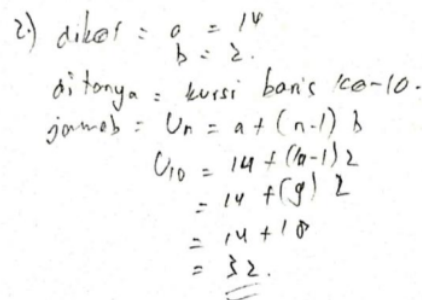 2.) diket : a = 14
b = 2.
ditanya = kursi baris ke-10.
jawab = Un = a + (n-1) b
U10 = 14 + (10-1) 2
= 14 + (9) 2
= 14 + 18
= 32.